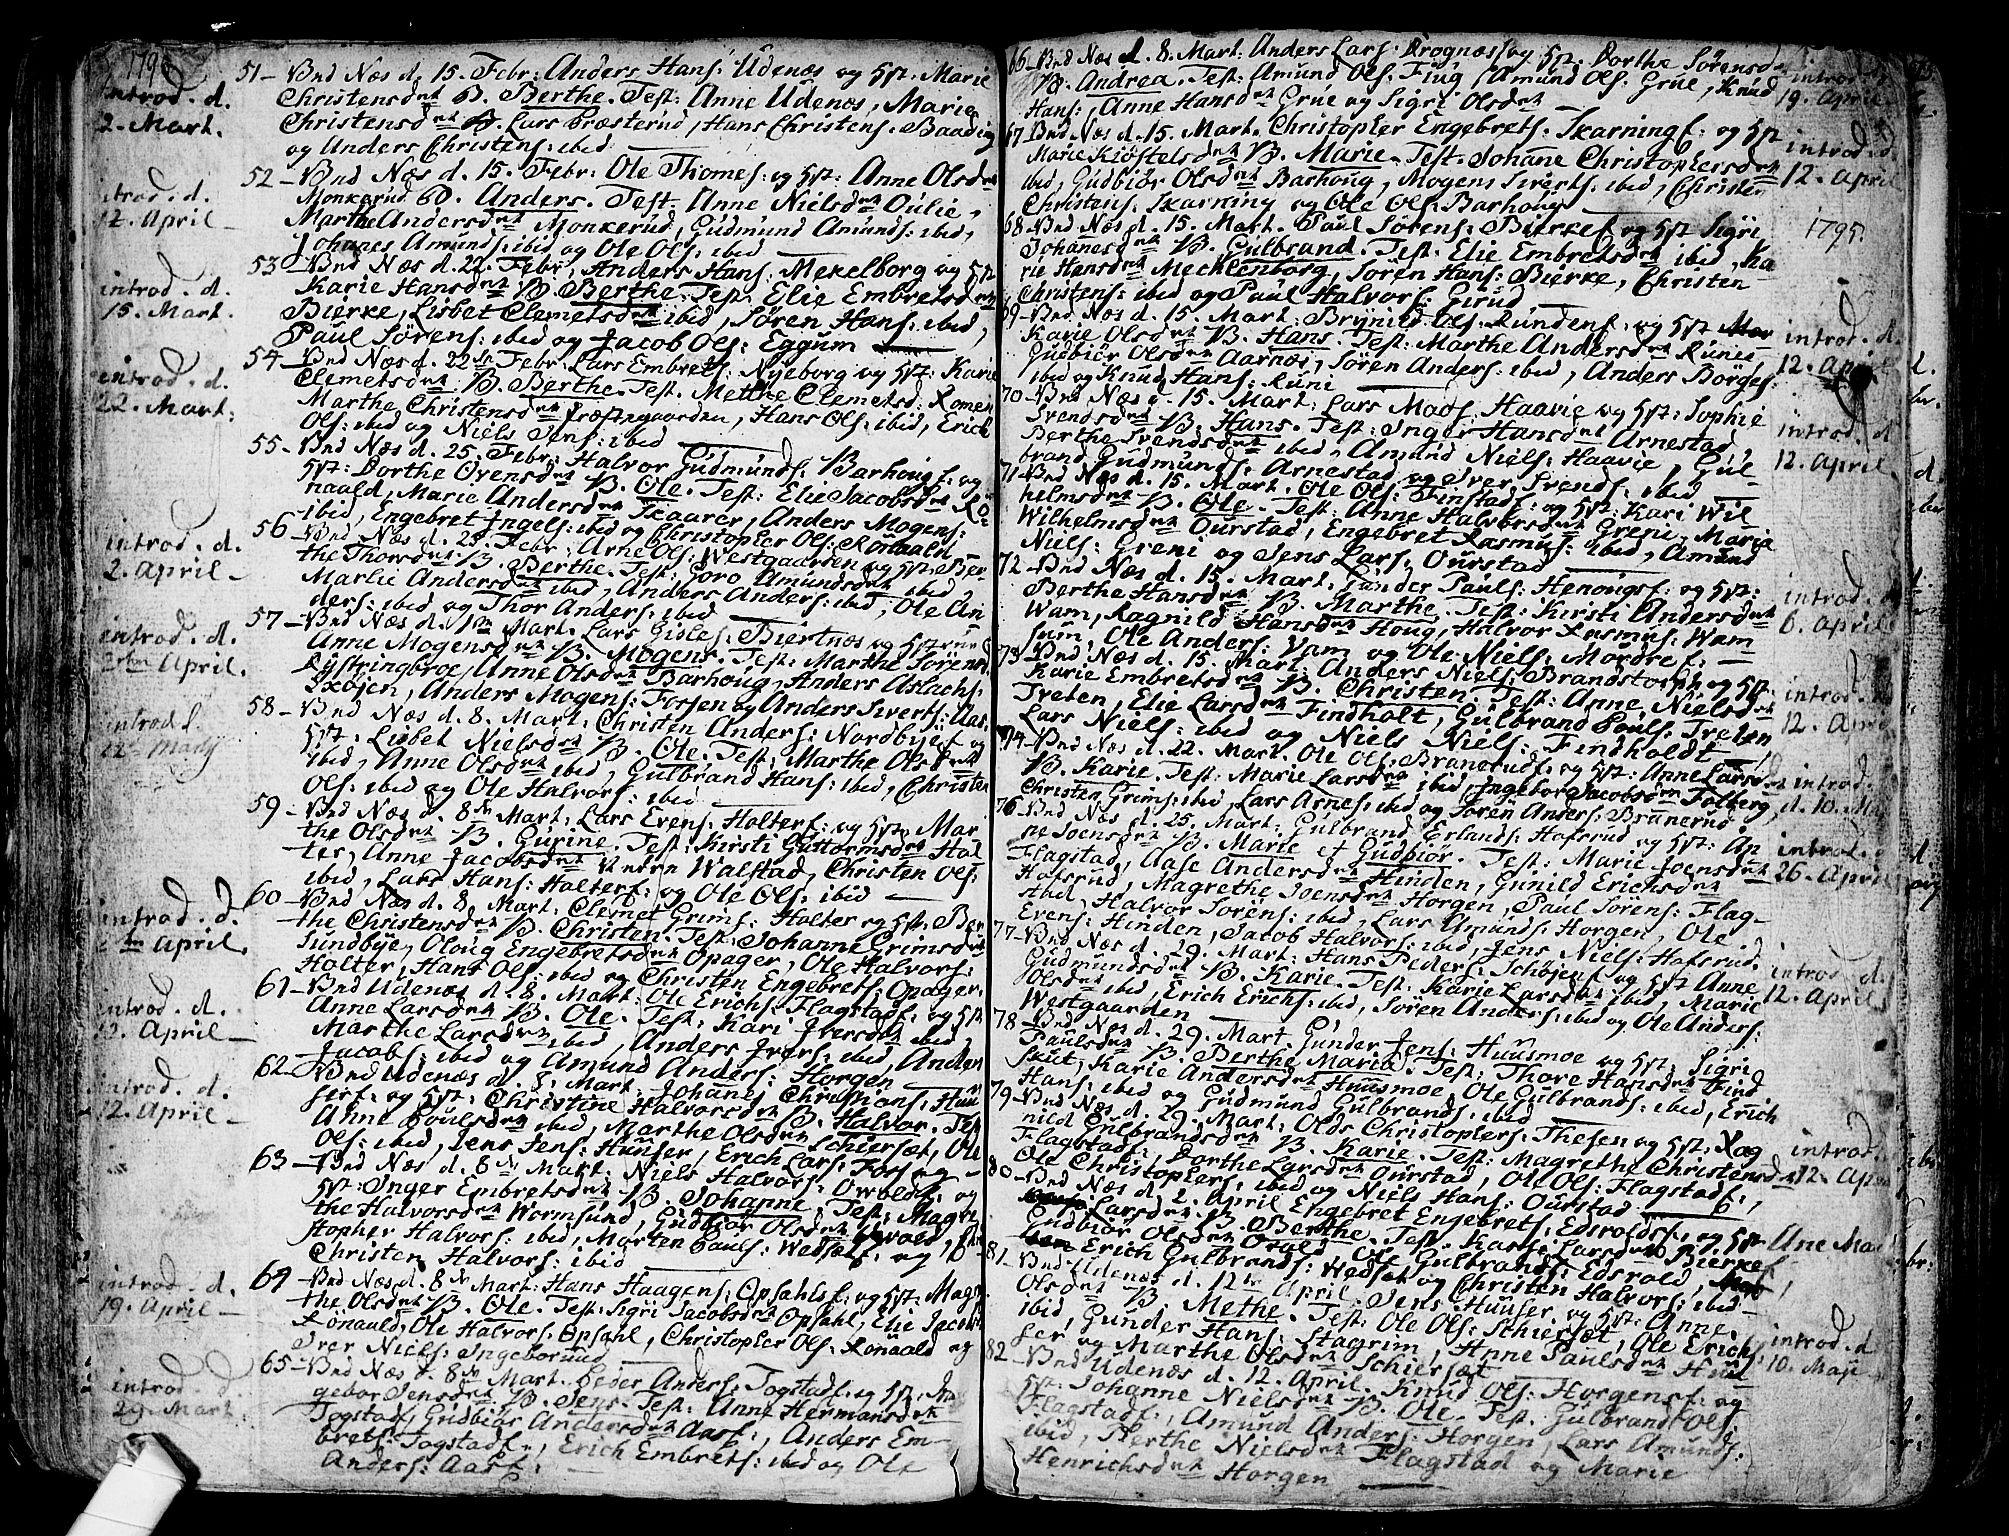 introd. d.
2. Mart.
51 - Bnd Næs d. 15. Febr: Anders Hans: Udenæs og Hst: Marie
Christensdtr B. Berthe. Test: Anne Udenæs, Marie
Christensdtr Lars Præsterud, Hans Christens: Baading
og Anders Christens: ibid
12. April
52 - Bnd Næs d. 15. Febr: Ole Thomes: og Hst: Anne Olsdtr
Monkerud B. Anders. Test. Anne Nielsdtr Oulie,
Marthe Andersdtr Monkerud, Gudmund Amunds: ibid,
Johanes Amunds: ibid og Ole Ols: ibid
introd. d.
15. Mart.
53 - Bnd Næs d. 22. Febr, Anders Hans: Mekelborg og Hst
Karie Hansdtr B. Berthe. Test Elie Embretsdtr
Bierke, Lisbet Clemetsdtr ibid, Søren Hans: ibid,
Paul Sørens: ibid og Jacob Ols: Eggum
introd. d.
22. Mart:
54 - Bnd Næs d. 22de Febr. Lars Embrets: Nyeborg og Hst: Karie
Clemetsdtr B. Berthe. Test. Methe Clemetsd: Romen
Marthe Christensdtr Præstegaarden, Hans Ols: ibid, Erich
Ols: ibid og Niels Jens: ibid
55 - Bnd Næs d. 25. Febr: Halvor Gudmunds: Barhougf: og
Hst: Dorthe Ovensdtr B. Ole. Test: Elie Jacobsdtr Rö-
naald, Marie Andersdtr Skaarer, Anders Mogens:
ibid, Engebret Ingels: ibid og Christopher Ols: Rönaald
introd. d.
2. April -
56 - Bnd Næs d. 25. Febr: Arne Ols: Westgaarden og Hst: Ber-
the Thorsdtr B. Berthe. Test: Goro Amundsdtr ibid,
Marlie Andersdtr ibid, Anders Anders: ibid, Ole An
ders: ibid og Thor Anders: ibid
introd. d.
April.
57 - Bnd Næs d. 1ste Mart. Lars Gisles: Biertnæs og Hstrue
Anne Mogensdtr B. Mogens. Test: Marthe Sørens
Rystringbroe, Anne Olsdtr Barhoug, Anders Aslachs:
Skøjen, Anders Mogens: Forsen og Anders Siverts: Aas.
introd.
58 - Bnd Næs d. 8. Mart: Christen Anders: Nordbyef og
Hst: Lisbet Nielsdtr B. Ole. Test: Marthe Olsdtr
ibid, Anne Olsdtr ibid, Gulbrand Hans: ibid, Christen
Ols: ibid og Ole Halvors: ibid
59 - Bnd Næs d. 8de Mart: Lars Evens: Holterf: og Hst: Mar
the Olsdtr B. Gurine. Test: Kirsti Guttormsdtr Hol
ter, Anne Jacobsdtr Walstad, Christen Ols:
ibid, Lars Hans: Holterf: og Ole Ols: ibid
introd. d.
April.
60 - Bnd Næs d. 8. Mart: Clemet Grims: Holter og Hst: Ber
the Christensdtr B. Christen. Test: Johanne Grimsdtr
Sundbye, Oloug Engebretsdtr Opager, Ole Halvors:
Holter, Hans Ols: ibid og Christen Engebrets: Opager.
introd. d.
12. April -
61 - Bnd Udenæs d. 8. Mart: Ole Erichs: Flagstadf: og Hst
Anne Larsdtr B. Ole. Test: Kari Iversdtr ibid,
Marthe Larsdtr ibid, Anders Ivers: ibid, Anders
Jacobs: ibid og Amund Anders: Horgen
introd. d.
12. April -
62 - Bnd Udenæs d. 8. Mart: Johanes Christians: Huu
serf: og Hst: Christine Halvorsdtr B. Halvor. Test
Anne Poulsdtr ibid, Marthe Olsdtr Schierset, Ole
Ols: ibid, Jens Jens: Huuser, Erich Lars: Fossg
63 - Bnd Næs d. 8de Mart. Niels Halvors: Owoldf: og
Hst: Inger Embretsdtr B. Johanne. Test: Magre
the Halvorsdtr Wormsund, Gudbiör Olsdtr Uwold, Chri
stopher Halvors: ibid, Morten Pauls: Wedsetf: og
Christen Halvors: ibid
introd. d.
19. April -
64 - Bnd Næs d. 8de Mart: Hans Haagens: Opsahlsf: og Hst: Magre
the Olsdtr B. Ole. Test: Sigri Jacobsdtr Opsahl, Elie Jacobs
Rönauld, Ole Halvors: Opsahl, Christopher Ols: Rönaald og
Iver Niels: Ingeborrud
introd. d.
29. Mart.
65 - Bnd Næs d. 8de Mart. Peder Anders: Togstadf: og Hst: In
gebor Jensdtr B. Jens. Test: Anne Hermansdtr
Togstad, Gudbiör Andersdtr Aasf:, Anders Em-
brets: Togstadf:, Erich Embrets: ibid og Ole
Anders: Aasf:
66 - Bnd Næs d. 8. Mart: Anders Lars: Drognæs og Hst. Dorthe Sørensd
B. Andrea. Test: Amund Ols: Fiug, Amund Ols: Grue, Knud
Hans:, Anne Hansdtr Grue og Sigri Olsdtr
introd.
19. April
67 Bnd Næs d. 15. Mart. Christopher Engebrets: Skarningf: og Hst
Marie Kiöstelsdtr B. Marie. Test. Johane Christophersdtr
ibid, Gudbiör Olsdtr Barhoug, Mogens Siverts: ibid, Christen
Christens: Skarning og Ole Ols: Barhoug
introd. d.
12. April
1795.
68 - Bnd Næs d. 15. Mart. Paul Sørens: Bierkef og Hst Sigri
Johanesdtr B. Gulbrand. Test: Elie Embretsdtr ibid, Ka
rie Hansdtr Mechlenborg, Sören Hans: Bierke, Christen
Christens: ibid og Paul Halvors: Girud
introd. d.
12. April
69 - Bnd Næs d. 15. Mart: Brynild Ols: Rundenf: og Hst
Karie Olsdtr B. Hans. Test: Marthe Andersdtr Runi,
Gudbiör Olsdtr Aarnæs, Sören Anders: ibid, Anders Börges:
ibid og Knud Hans: Runi
introd. d
12. April.
70 - Bnd Næs d. 15. Mart: Lars Mads: Haavie og Hst: Sophie
Svendsdtr B. Hans. Test: Inger Hansdtr Arnestad,
Berthe Svendsdtr ibid, Amund Niels: Haavie, Gul-
brand Gudmunds: Arnestad og Iver Svends: ibid
71 - Bnd Næs d. 15. Mart. Ole Ols: Finstadf: og Hst: Kari Wil
helmsdtr B. Ole. Test: Anne Halvorsdtr Greni, Maria
Wilhelmsdtr Ourstad, Engebret Rasmus: ibid, Amund
Niels: Greni og Jens Lars: Ourstad
introd.
6. April
72 - Bnd Næs d. 15. Mart. Gunder Pauls: Henougsf: og Hst:
Berthe Hansdtr B. Marthe. Test: Kirsti Andersdtr
Wam, Ragnild Hansdtr Houg, Halvor Rasmus: Wam
Ole Anders: Vam og Ole Niels: Mordref:
introd.
12. April
73 - Bnd Næs d. 15. Mart: Anders Niels: Brandstorpf: og Hst.
Karie Embretsdtr B. Christen. Test: Anne Nielsdtr
Treten, Elie Larsdtr Findholt, Gulbrand Pouls: Treten,
Lars Niels: ibid og Niels Niels: Findholdt
introd.
d. 10. Maj
74 - Bnd Næs d. 22. Mart. Ole Ols: Branerudf: og Hst: Anne Larsd
B. Karie. Test: Marie Larsdtr ibid, Ingebor Jacobsdtr Tolberg,
Christen Grims: ibid, Lars Arnes: ibid og Sören Anders: Brunerud
introd.
26. April
76 - Bnd Næs d. 25. Mart: Gulbrand Erlands: Hofsrud og Hst: An
ne Joensdtr B. Marie et Gudbiör. Test: Marie Joensdtr
Flagstad, Aase Andersdtr Hinden, Gunild Erichsdtr
Hofsrud, Magrethe Joensdtr Horgen, Paul Sörens: Flag-
stad, Halvor Sörens: ibid, Lars Amunds: Horgen, Ole
Evens: Hinden, Jacob Halvors: ibid, Jens Niels: Hofsrud.
introd. d.
12. April
77 - Bnd Næs d. 29. Mart: Hans Peders: Schöjenf og Hst Anne
Gudmundsdtr B. Karie. Test. Karie Larsdtr ibid, Marie
Olsdtr ibid, Erich Erichs: ibid, Sören Anders: ibid og Ole Anders:
Westgaarden
78 - Bnd Næs d. 29. Mart: Gunder Jens: Huusmoe og Hst: Sigri
Paulsdtr B. Berthe Maria. Test: Thore Hansdtr Find
skut, Karie Andersdtr Huusmoe Ole Gulbrands: ibid, Erich
Hans: ibid og Gudmund Gulbrands: ibid
introd.
12. April
79 - Bnd Næs d. 29. Mart: Ole Christophers: Thesen og Hst: Rag
nild Gulbrandsdtr B. Karie. Test: Magrethe Christensd
Flagstadf:, Dorthe Larsdtr Ourstad, Ole Ols: Flagstadf:,
Ole Christophers: ibid og Niels Hans: Ourstad
80 - Bnd Næs d. 2. April Engebret Engebrets: Edsvoldsf: og Hst
Larsdtr B. Berthe. Test. Karie Larsdtr Bierke
Gudbiör Olsdtr Ovold, Ole Gulbrands: Edsvold,
Erich Gulbrands: Wedset og Christen Halvors: ibid -
81 - Bnd Udenæs d. 12te April. Jens Huuser og Hst: Anne
Olsdtr B. Methe. Test: Ole Ols: Schierset, Ole Erichs:
ibid, Gunder Hans: Stagrim, Anne Paulsdtr Huu
ser og Marthe Olsdtr Schierset
introd. d
10. Maji
82 - Bnd Udenæs d. 12. April. Knud Ols: Horgensf: og
Hst: Johanne Nielsdtr B. Ole. Test. Gulbrand Ols:
Flagstadf:, Amund Anders: Horgen, Lars Amunds:
ibid, Berthe Nielsdtr Flagstad og Marie
Henrichsdtr Horgen